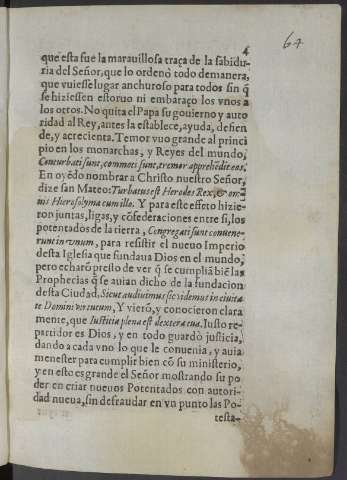 4
64
que esta fue la marauillosa traça de la sabidu-
ria del Señor, que lo ordenó todo demanera,
que vuiesse lugar anchuroso para todos sin q̃
se hiziessen estoruo ni embaraço los vnos a
los otros. No quita el Papa su gouierno y auto
ridad al Rey, antes la establece, ayuda, defien
de, y acrecienta. Temor vuo grande al princi
pio en los monarchas, y Reyes del mundo,
Conturbati sunt, commoti sunt, tremor apprehẽdit eos.
En oyẽdo nombrar a Christo nuestro Señor,
dize san Mateo: Turbatus est Herodes Rex, & om-
nis Hierosolyma cum illo. Y para este effeto hizie
ron juntas, ligas, y cõfederaciones entre si, los
potentados de la tierra, Congregati sunt conuene-
runt in vnum, para resistir el nuevo Imperio
desta Iglesia que fundaua Dios en el mundo,
pero echarõ presto de ver q̃ se cumpliã biẽ las
Prophecias q̃ se auian dicho de la fundacion
desta Ciudad, Sicut audiuimus sic vidimus in ciuita
te Domini virtutum, Y vierõ, y conocieron clara
mente, que Iustitia plena est dextera tua. Iusto re-
partidor es Dios, y en todo guardò justicia,
dando a cada vno lo que le conuenia, y auia
menester para cumplir bien cõ su ministerio,
y en esto es grande el Señor mostrando su po
der en criar nueuos Potentados con autori-
dad nueua, sin defraudar en vn punto las Po-
testa-